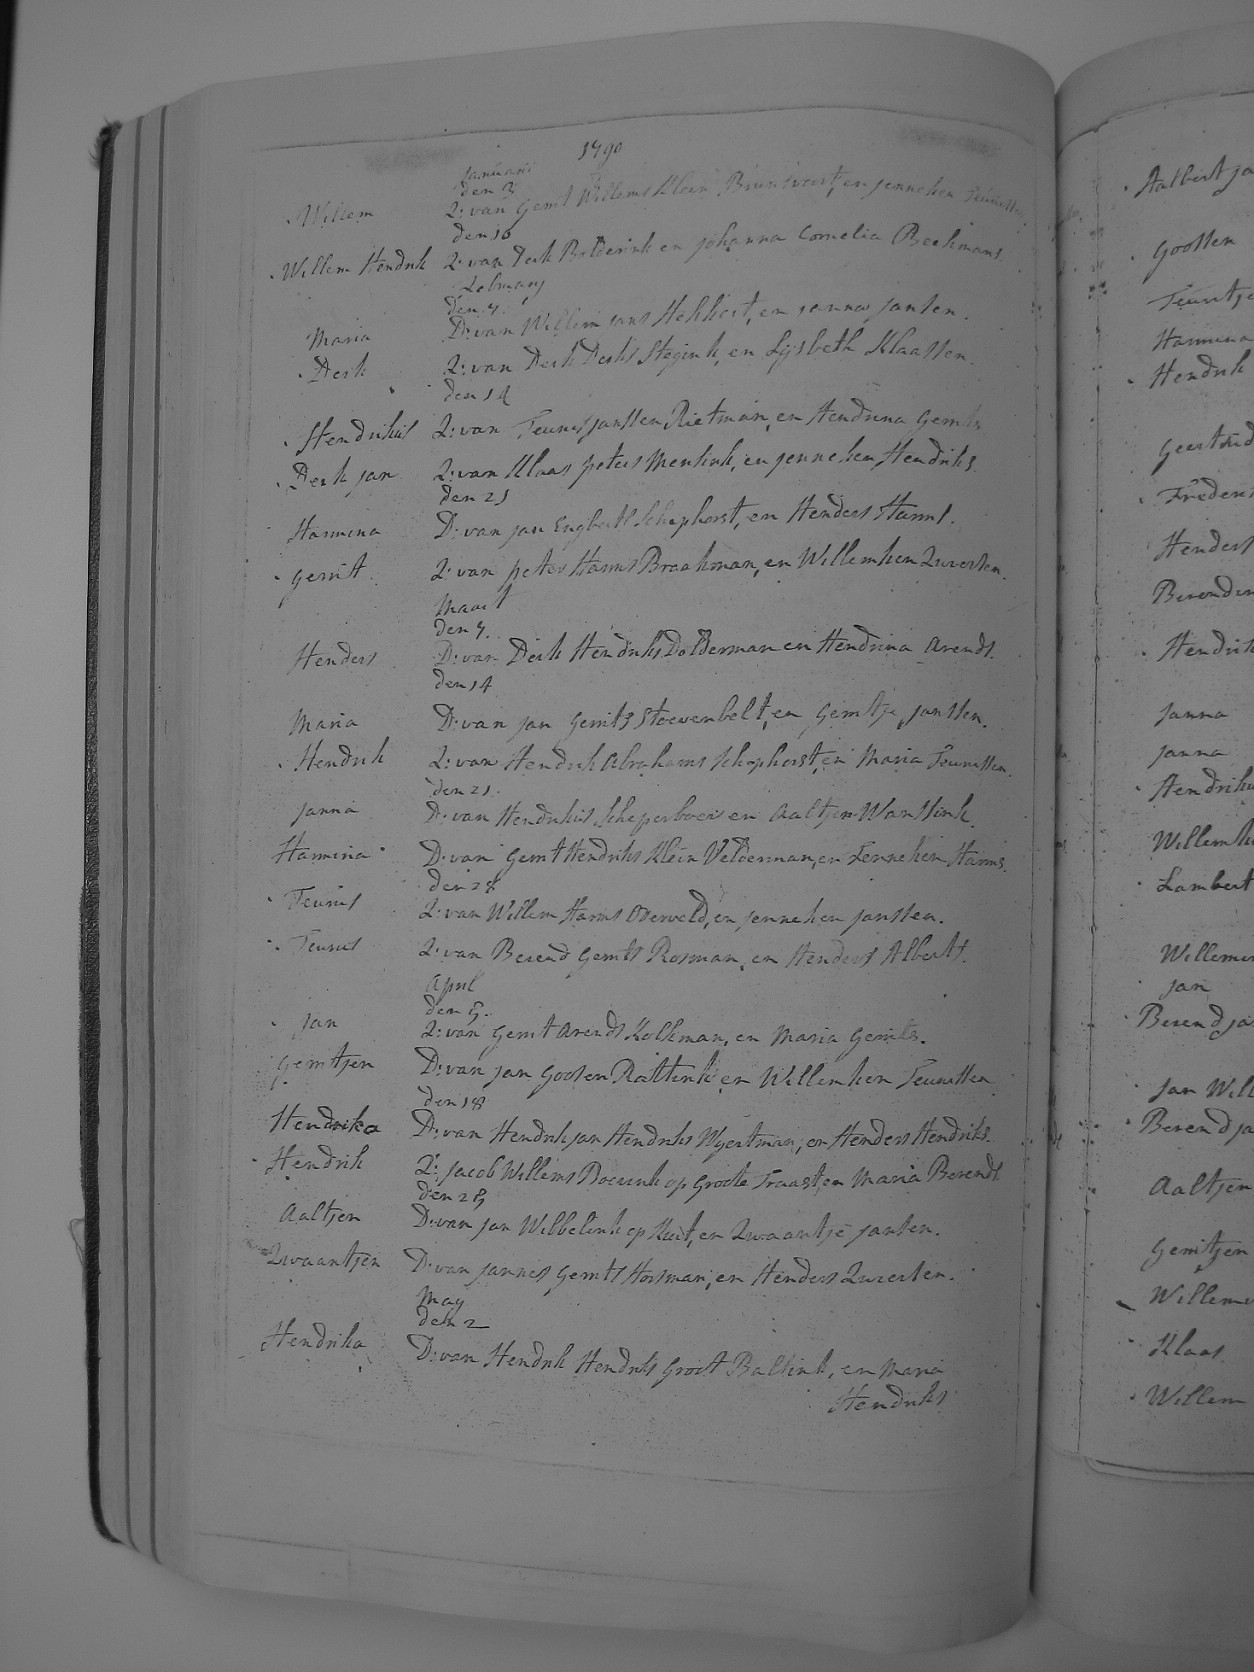 1790
Januarii
den 3
Willem Z: van Gerrit Willems Klein Brinsvoort, en Jenneken Teunissen
den 10
Willem Hendrik Z: van Derk Bolderink en Johanna Cornelia Beekmans
Februarij
den 7.
Maria D: van Willem Jans Hekhort, en Janna Jansen.
Derk Z: van Derk Derks Stegink, en Lijsbeth Klaassen.
den 14
Hendrikus Z: van Teunis Janssen Rietman, en Hendrina Gerrits
Derk Jan Z: van Klaas Peters Mensink, en Jenneken Hendriks.
den 21
Harmina D: van Jan Engberts Schephorst, en Henders Harms.
Gerrit Z: van Peter Harms Braakman, en Willemken Zweersen.
Maart
den 7.
Henders D: van Derk Hendriks Dolderman en Hendrina Arends.
den 14
Maria D: van Jan Gerrits Stoevenbelt, en Gerritje Janssen.
Hendrik Z: van Hendrik Abrahams Schephorst, en Maria Teunissen.
den 21.
Janna D: van Hendrikus Scheperboer en Aaltjen Wanssink.
Harmina D: van Gerrit Hendriks Klein Velderman, en Fenneken Harms.
den 28
Teunis Z: van Willem Harms Overveld, en Jenneken Janssen.
Teunis Z: van Berend Gerrits Rosman, en Henders Alberts.
April
den 5.
Jan Z: van Gerrit Arends Kolkman, en Maria Gerrits.
Gerritjen D: van Jan Goosen Rattink en Willemken Teunissen
den 18
Hendrika D: van Hendrik Jan Hendriks Wyertman, en Henders Hendriks.
Hendrik Z: Jacob Willems Boevink op Groote Fraast, en Maria Berends
den 25
Aaltjen D: van Jan Wilbelink op Kuit, en Zwaantje Jansen.
Zwaantjen D: van Jannes Gerrits Horsman, en Henders Zweersen.
May
den 2
Hendrika D: van Hendrik Hendriks Groot Baltink, en Maria
Hendriks
Aalbert Ja
Goossen
Teuntje
Harmina
Hendrik
Geertruid
Frederi
Henders
Berendin
Hendrik
Janna
Janna
Hendriku
Willemk
Lambert
Willemi
Jan
Berend Ja
Jan Will
Berend Ja
Aaltjen
Gerritjen
Willemi
Klaas.
Willem